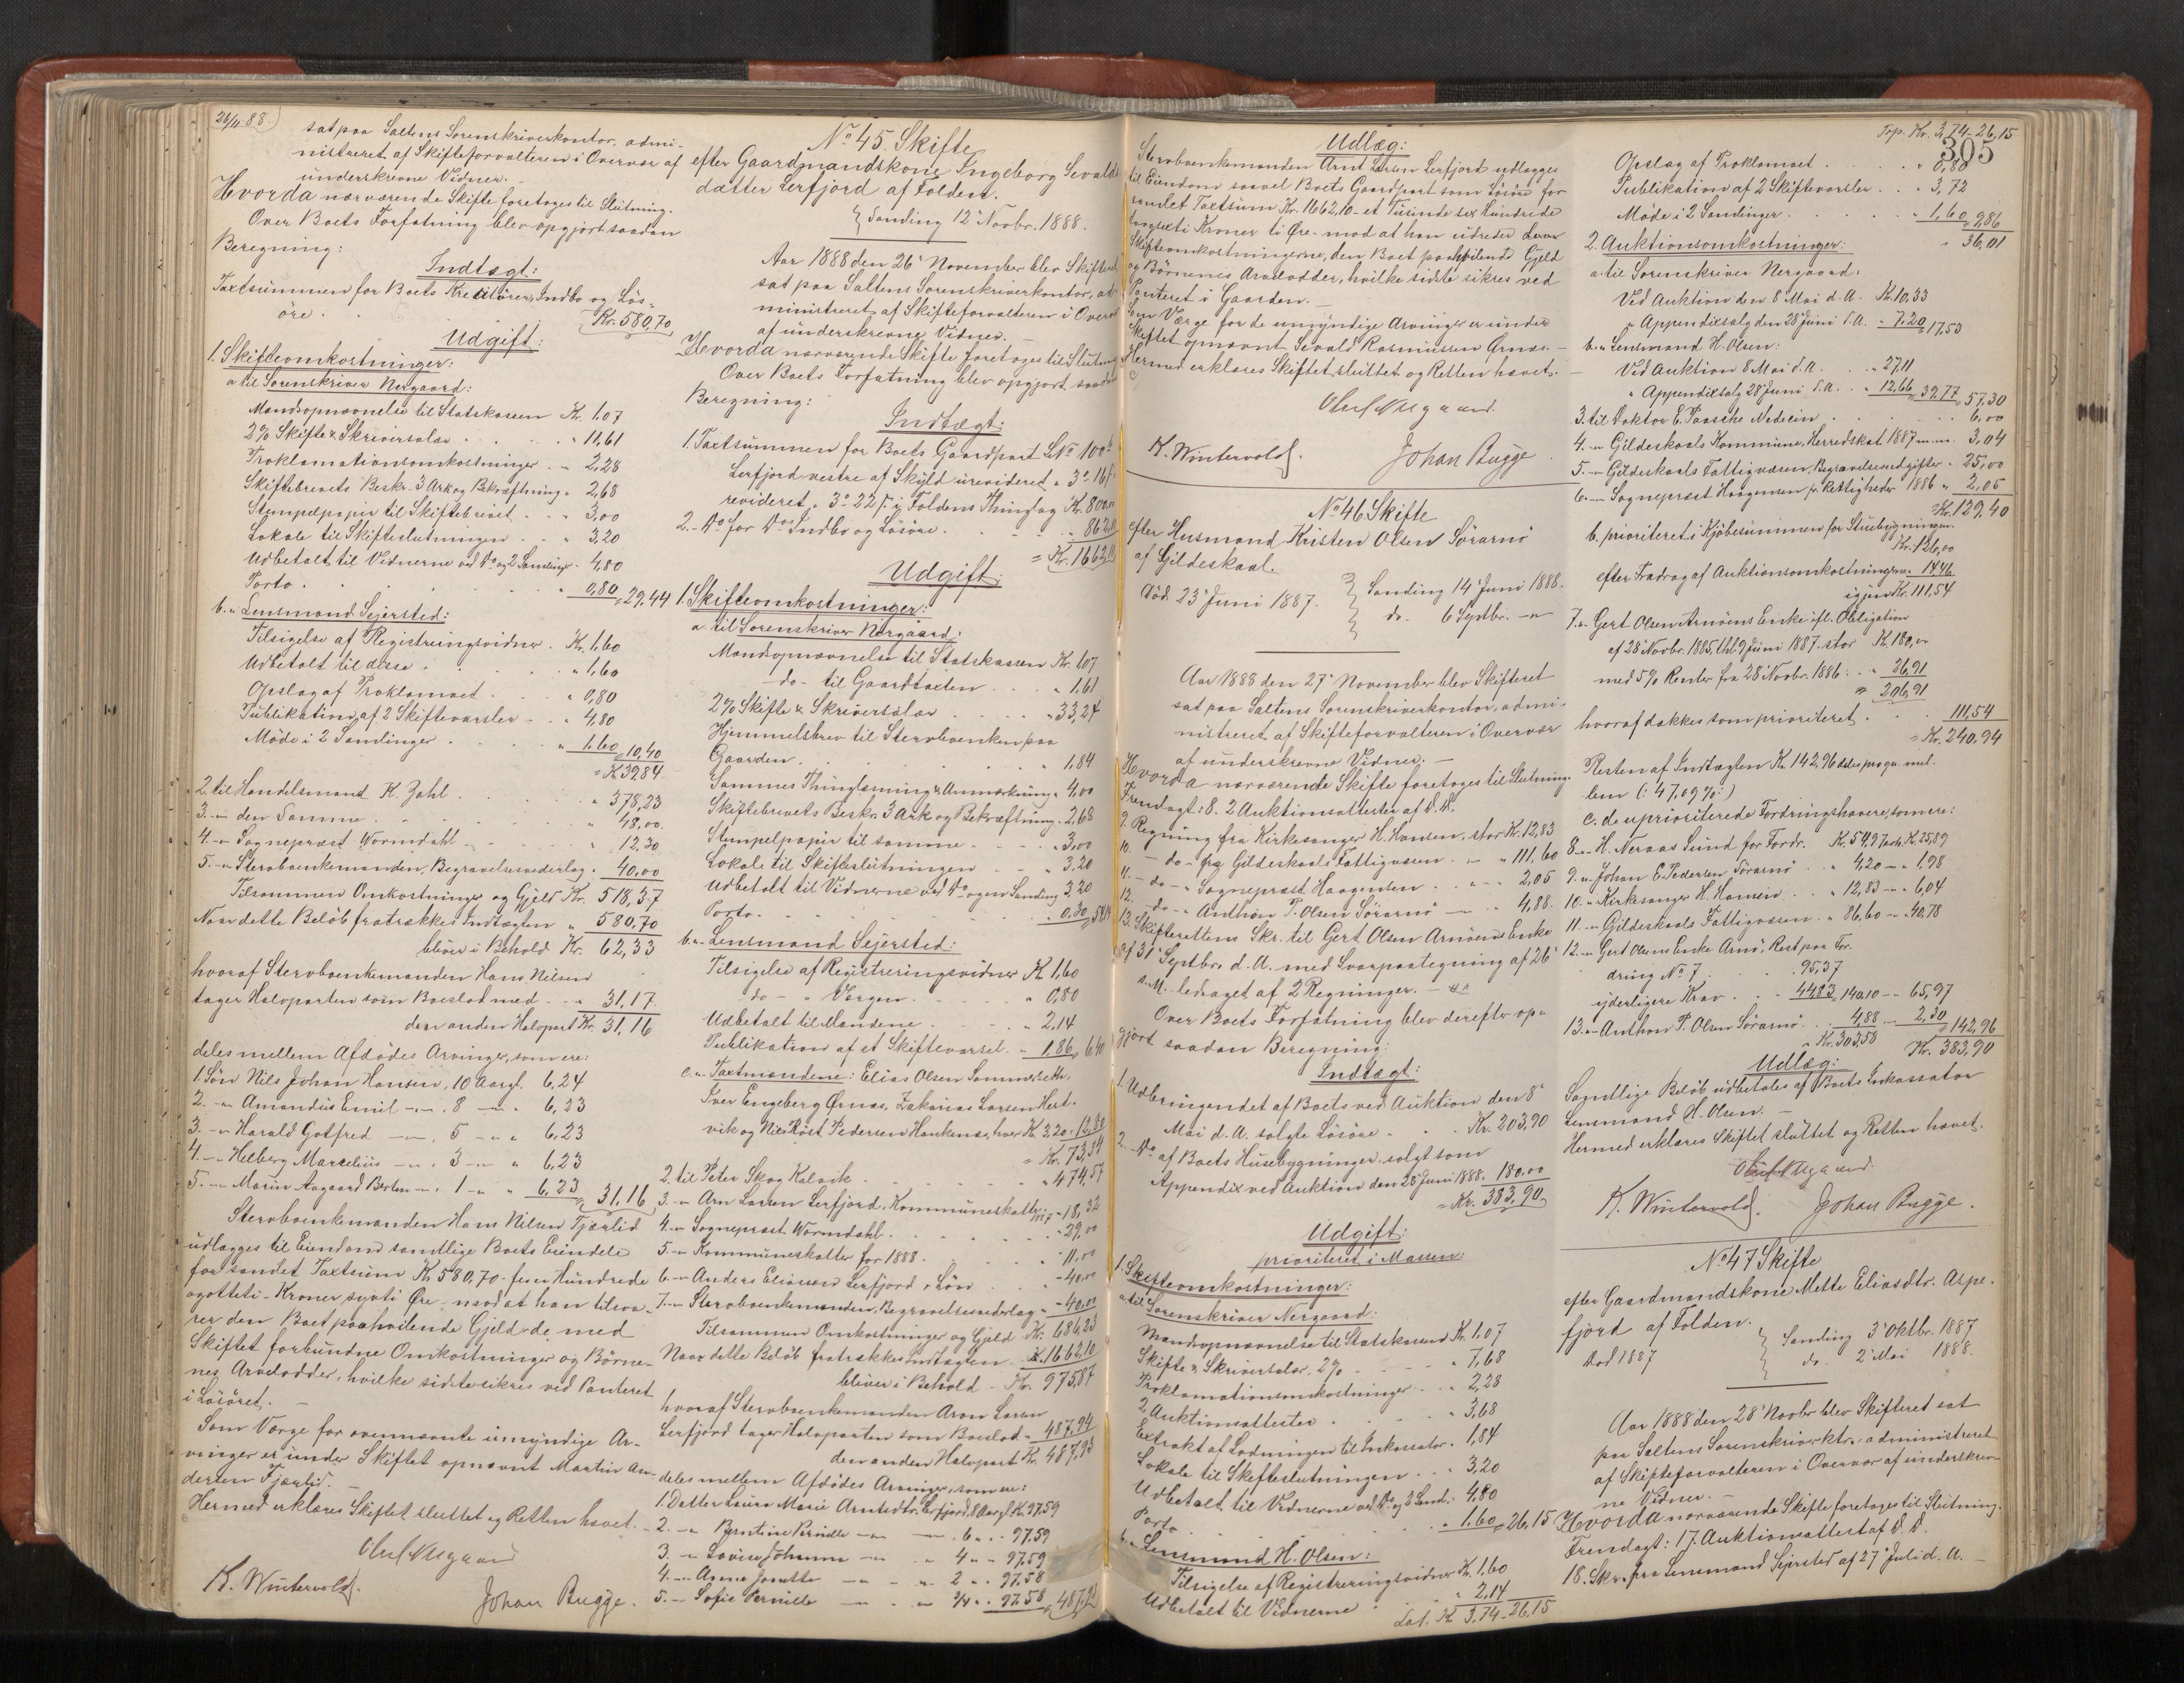 26/11 88
sat paa Saltens Sorenskriverkontor, admi-
nistreret af Skifteforvalteren i Overvær af
underskrevne Vidner. –
Hvorda nærværende Skifte foretoges til Slutning.
Over Boets Forfatning blev opgjort saadan
Beregning:
Indtægt:
Taxtsummen for Boets Kreaturer, Indbo og Løs-
øre . Kr. 580,70
Udgift:
1. Skifteomkostninger:
a. til Sorenskriver Nergaard:
Mandsopnævnelse til Statskassen Kr. 1.07
2% Skifte & Skriversalær . . . " 11,61
Proklamationsomkostninger . " 2,28
Skiftebrevets Beskr. 3 Ark og Bekræftning " 2,68
Stempelpapir til Skiftebrevet . . " 3,00
Lokale til Skifteslutningen . . " 3,20
Udbetalt til Vidnerne ved Do og 2 Samlinger . 4,80
Porto . . " 0,80 = 29.44
b. " Lensmand Sejersted:
Tilsigelse af Registreringsvidner . Kr. 1,60
Udbetalt til disse . . " 1,60
Opslag af Proklamaet . . " 0,80
Publikation af 2 Skiftevarsler . . " 4,80
Møde i 2 Samlinger . . " 1.60 = 10,40
= K 39.84
2. til Handelsmand K. Zahl . . " 378,23
3. " den Samme . . " 48,00.
4. " Sogneprest Wormdahl . . " 12.30
5. " Stervboenkemanden, Begravelsesvederlag . 40,00
Tilsammen Omkostninger og Gjeld Kr. 518,37
Naar dette Beløb fratrækkes Indtægten " 580,70
bliver i Behold Kr. 62,33
hvoraf Stervboenkemanden Hans Nilsen
tager Halvparten som Boeslod med . . " 31.17.
den anden Halvpart Kr. 31,16
deles mellem Afdødes Arvinger, som ere:
1. Søn Nils Johan Hansen, 10 Aar gl. 6,24
2. – " Amandus Emil – " – . 8 – " . 6,23
3. – " Harald Gotfred – " . 5 – " " 6,23
4. – " Helberg Marcelius – " . 3 – " " 6,23
5. – " Marin Aagaard Berten – " . 1 – " " 6,23 = 31,16
Stervboenkemanden Hans Nilsen Fjærlid
udlægges til Eiendom samtlige Boets Eiendele
for samlet Taxtsum Kr. 580,70 – fem Hundrede
ogotteti – Kroner, sytti Øre, mod at han tilsva-
rer den Boet paahvilende Gjeld, de med
Skiftet forbundne Omkostninger og Børne-
nes Arvelodder, hvilke sidste sikres ved Panteret
i Løsøret. –
Som Værge for ovennævnte umyndige Ar-
vinger er under Skiftet opnævnt Martin An-
dersen Fjærlid. –
Hermed erklæres Skiftet sluttet og Retten hævet. –
K. Wintervold.
Johan Bugge.
No 45. Skifte
efter Gaardmandskone Ingeborg Sevalds-
datter Lerfjord af Folden.
Samling 12' Novbr. 1888.
Aar 1888 den 26' November blev Skifteret
sat paa Saltens Sorenskriverkontor, ad-
ministreret af Skifteforvalteren i Overvær
af underskrevne Vidner. –
Hvorda nærværende Skifte foretoges til Slutning
Over Boets Forfatning blev opgjort saadan
Beregning:
Indtægt:
1. Taxtsummen for Boets Gaardpart L.No 100b
Lerfjord vestre af Skyld urevideret
revideret i Foldens Thinglag Kr. 800,00
2. – Do for Dos Indbo og Løsøre. . " 862.10
= Kr. 1662,10
Udgift:
1. Skifteomkostninger:
a. til Sorenskriver Nergaard:
Mandsopnævnelse til Statskassen Kr. 1.07
do – til Gaardtaxten . . . " 1.61
2% Skifte & Skriversalær . . . " 33,24
Hjemmelsbrev til Stervboenkem paa
Gaarden . . " 1,84
Sammes Thinglæsning & Anmærkning " 4,00
Skiftebrevets Beskr. 3 Ark og Bekræftning . 2,68
Stempelpapir til samme . . . " 3,00
Lokale til Skifteslutningen . . 3,20
Udbetalt til Vidnerne ved Do og en Samling 3,20
Porto . . " 0,30
b. " Lensmand Sejersted:
Tilsigelse af Registreringsvidner Kr. 1,60
do – " Værgen . . " 0,80
Udbetalt til Mændene . . " 2,14
Publikation af et Skiftevarsel . " 1.86 = 6.40
c. " Taxtmændene: Elias Olsen Sommersæth,
Iver Engeberg Ørnæs, Zakarias Larsen Hest-
vik og Nils Røst Pedersen Haukenæs, hver Kr. 3.20 = 12,80
= Kr. 73,34
2. til Peter Skog Kalvik . . " 474.57
3. " Arn Larsen Lerfjord, Kommuneskatter 1887 – 18,32
4. " Sogneprest Wormdahl . . – 29,00
5. " Kommuneskatter for 1888 . . – 11,00
6. " Anders Eliassen Lerfjord, Løn . . – 40,00
7. " Stervboenkemanden, Begravelsesvederlag " – 40,00
Tilsammen Omkostninger og Gjeld Kr. 686,23
Naar dette Beløb fratrækkes Indtægten . Kr. 1662,10
bliver i Behold – Kr. 975,87
hvoraf Stervboenkemanden Arn Larsen
Lerfjord tager Halvparten som Boeslod . 487.94
den anden Halvpart Kr. 487,93
deles mellem Afdødes Arvinger, som ere:
1. Datter Laura Marie Arntsdtr. Lerfjord, 8 Aar gl. Kr. 97.59
2. – " Berntine Pernille – " – . 6 " . 97.59
3. – " Lovise Johanna – " " 4 " – 97.59
4. – " Anna Jonette – " " 2 " . 97.58
5. – " Sofie Pernille – " . " 3/4 " . 97.58 = 487.93
Udlæg:
Stervboenkemanden Arnt Larsen Lerfjord udlægges
til Eiendom saavel Boets Gaardpart som Løsøre for
samlet Taxtsum Kr. 1662,10 – et Tusinde sex Hundrede
togsexti Kroner ti Øre – mod at han udreder
Skifteomkostningerne, den Boet paahvilende Gjeld
og Børnenes Arvelodder, hvilke sidste sikres ved
Panteret i Gaarden. –
Som Værge for de umyndige Arvinger er under
Skiftet opnævnt Sevald Rasmussen Ørnæs. –
Hermed erklæres Skiftet sluttet og Retten hævet. –
K. Wintervold.
Johan Bugge
No 46 Skifte
efter Husmand Kristen Olsen Sørarnø
af Gildeskaal.
Død 23' Juni 1887.
Samling 14' Juni 1888.
do. 6 Septbr. – "
Aar 1888 den 27' November blev Skifteret
sat paa Saltens Sorenskriverkontor, admi-
nistreret af Skifteforvalteren i Overvær
af underskrevne Vidner. –
Hvorda nærværende Skifte foretoges til Slutning.
Fremlagt: 8. 2 Auktionsattester af D. D.
9. Regning fra Kirkesanger H. Hansen, stor Kr. 12,83
10. – do – fra Gildeskaals Fattigvæsen . – " 111,60
11. – do – " Sogneprest Haagensen . " – 2,05
12. – do – " Anthon P. Olsen Sørarnø – " 4,88.
13. Skifterettens Skr. til Gert Olsen Arnøens Enke
af 31' Septbr. d. A. med Svarpaategning af 26'
s. M. ledsaget af 2 Regninger. –
Over Boets Forfatning blev derefter op-
gjort saadan Beregning:
Indtægt:
1. Udbringendet af Boets ved Auktion den 8'
Mai d. A. solgte Løsøre . . Kr. 203,90
2. Do af Boets Husebygninger solgt som
Appendix ved Auktion den 28' Juni 1888. 180.00
= Kr. 383,90
Udgift:
prioriteret i Massen:
1. Skifteomkostninger:
a. til Sorenskriver Nergaard.
Mandsopnævnelse til Statskassen Kr. 1.07
Skifte & Skriversalær, 2% . . " 7,68
Proklamationsomkostninger . . " 2,28
2 Auktionsattester . . " 3,68
Extrakt af Lodningen til Inkassator . 1,84
Lokale til Skifteslutningen . . " 3,20
Udbetalt til Vidnerne ved Do og 2 Saml. . 4,80
Porto . . " 1.60 = 26,15
b. " Lensmand H. Olsen:
Tilsigelse af Registreringsvidner Kr. 1.60
Udbetalt til Vidnerne . " 2,14
Lat. Kr. 3.74 – 26.15
Trp. Kr. 3,74 – 26,15
305
Opslag af Proklamaet . . " 0,80
Publikation af 2 Skiftevarsler . . " 3,72
Møde i 2 Samlinger . . " 1,60 = 9,86
= 36,01
2. Auktionsomkostninger:
a. til Sorenskriver Nergaard:
Ved Auktion den 8 Mai d. A. Kr. 10,33
" Appendixsalg den 28' Juni s. A. – 7.20 = 17,53
b. " Lensmand H. Olsen:
Ved Auktion 8 Mai d. A. . " 27,11
" Appendixsalg 28' Juni s. A. . " 12,66 = 39,77 = 57,30
3. til Doktor E. Paasche Medicin . . 6,00
4. " Gildeskaals Kommune, Herredskat 1887 m.m. 3,04
5. – " Gildeskaals Fattigvæsen, Begravelsesudgifter . 25,00
6. – " Sogneprest Haagensen for Rettigheder 1886 " 2,05
Kr. 129,40
b. prioriteret i Kjøbesummen for Stuebygningen
Kr. 126,00
efter Fradrag af Auktionsomkostningerne 14,46
igjen Kr. 111,54
7. " Gert Olsen Arnøens Enke ifl. Obligation
af 28' Novbr. 1885, thl. 9 Juni 1887. stor Kr. 180,00
med 5% Renter fra 28' Novbr. 1886 . . " 26,91
= 206,91
hvoraf dækkes som prioriteret . . 111,54
= Kr. 240,94
Resten af Indtægten Kr. 142,96 deles pro qu. mel-
lem (: 47,09 %:)
c. de uprioriterede Fordringshavere, som ere:
8. " H. Neraas Sund for Fordr. Kr. 54,97 Kr. 25,89
9. " Johan E. Pedersen Sørarnø . " 4,20 – " 1,98
10. " Kirkesanger H. Hansen . . " 12,83 – " 6,04
11. " Gildeskaals Fattigvæsen . " 86,60 – " 40,78
12. " Gert Olsens Enke Arnø, Rest paa For-
dring No 7 . . 95,37
yderligere Krav . . 44,83 = 140,10 – " 65,97
13. " Anthon P. Olsen Sørarnø . 4,88 – 2,30 = 142,96
= Kr. 303,58 Kr. 383,90
Udlæg:
Samtlige Beløb udbetales af Boets Inkassator
Lensmand H. Olsen. –
Hermed erklæres Skiftet sluttet og Retten hævet.
K. Wintervold. Johan Bugge.
No 47 Skifte
efter Gaardmandskone Mette Eliasdtr. Aspe-
fjord af Folden.
Død 1887
Samling 3' Oktbr. 1887
do. 2' Mai 1888.
Aar 1888 den 28' Novbr blev Skifteret sat
paa Saltens Sorenskriverktr., administreret
af Skifteforvalteren i Overvær af underskrev-
ne Vidner. –
Hvorda nærværende Skifte foretoges til Slutning.
Fremlagt: 17. Auktionsattest af D. D.
18. Skr. fra Lensmand Sejersted af 27' Juli d. A. –